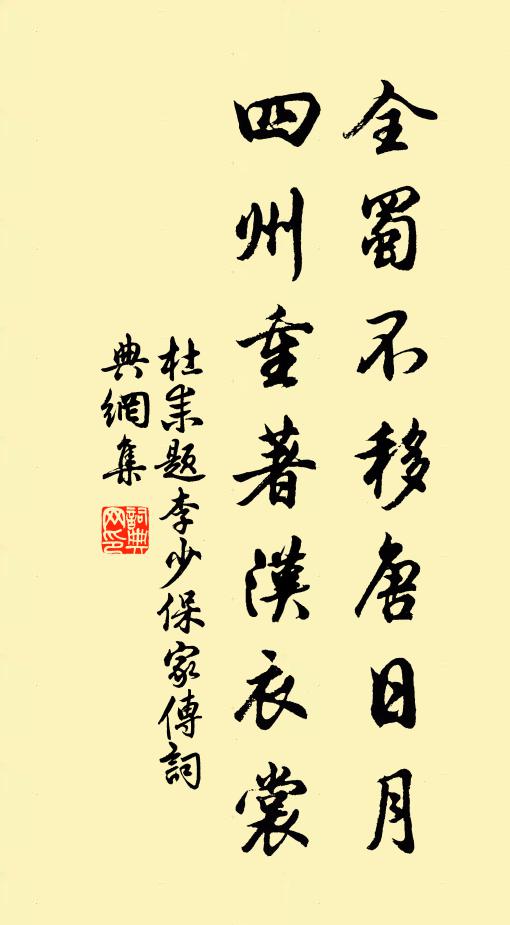 全蜀不移唐日月
四州重著漢衣裳
杜耒題李少保家傳詞
典網集
詞典
网印